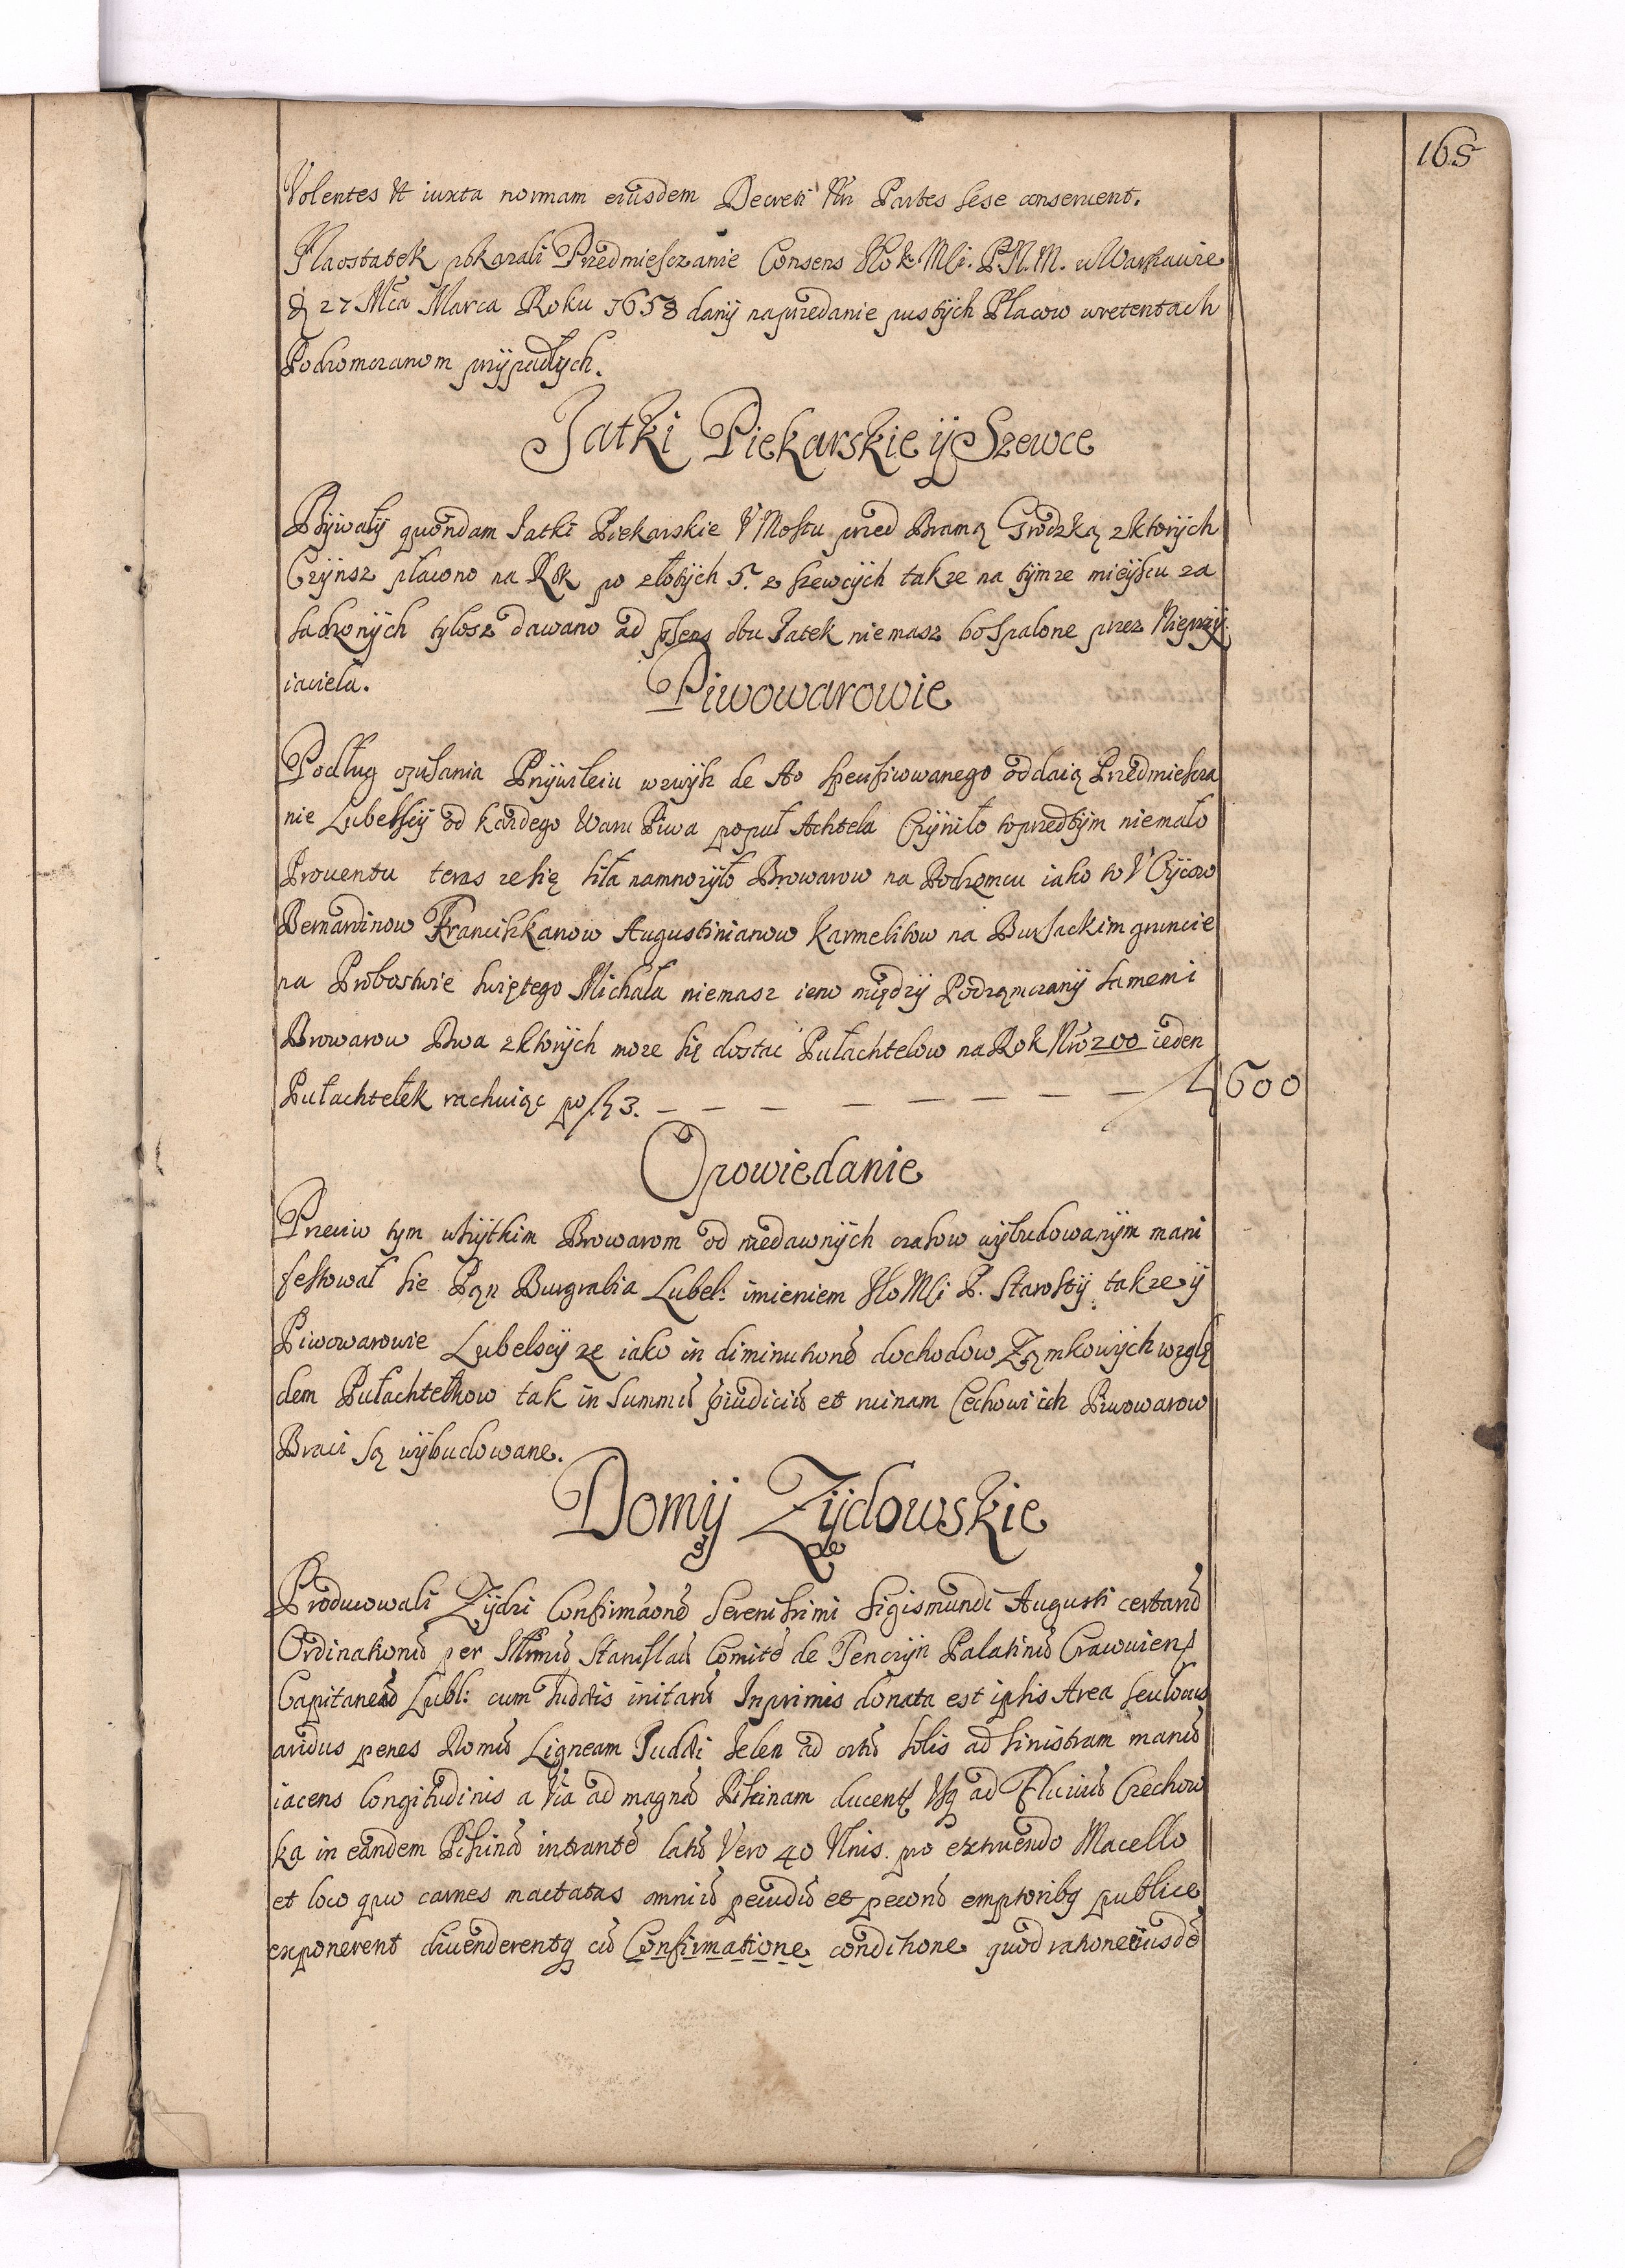 165
Volentes Ut iuxta normam eiusdem Decreti Partes sese conservent.
Naostatek pokazali Przedmiesczanie Consens JKo Mśi. P.N.M. w Warszawie
d 27 Mca Marca Roku 1658 dany naprzedanie pustych Placow wretentach
Podzamczanom przypadłych.
Jatki Piekarskie ÿ Szewce
Bÿwałÿ quondam Jatki Piekarskie V Mostu przed Bramą Grodzką zktorÿch
Czÿnsz płacono na Rok po złotÿch 5. z szewcÿch takze na tÿmze mieÿscu za
sadzonÿch tylosz dawano ad psens obu Jatek niemasz bo spalone przez Nieprzÿ
iaciela.
Piwowarowie
Podług opisania Prziwileiu wzwÿsz de Ao specifiwowanego oddaią Przedmiescza
nie Lubelscÿ od kazdego Waru Piwa popuł Achtela Czÿniło toprzedtÿm niemało
Proventu teras zesię siła namnozÿło Browarow na Podzamcu iako to V Oÿcow
Bernardinow Franciszkanow Augustinianow Karmelitow na Bursackim gruncie
na Probostwie swiętego Michała niemasz ieno międzÿ Podzamczanÿ samemi
Browarow Dwa zktorÿch moze się dostac Pułachtelow na Rok Nro 200 ieden
Pułachtelek rachuiąc po fl 3. — — — — — — — — fl 600
Opowiedanie
Przeciw tym wszÿtkim Browarom od niedawnÿch czasow wÿbudowanÿm mani
festował sie Pan Burgrabia Lubel: imieniem JKo Mśi P. Starostÿ takze ÿ
Piwowarowie Lubelscÿ ze iako in diminutione dochodow Zamkowÿch wzglę
dem Pułachtelkow tak in summu piudiciu et ruinam Cechowi ich Piwowarow
Braci są wÿbudowane.
Domÿ Zÿdowskie
Producowali Zÿdzi Confirmaone Serenissimi Sigismundi Augusti certaru
Ordinationu per Illrmu Stanislau Comite de Tenczÿn Palatinu Cracovien
Capitaneu Lubl: cum Judæis initaru Inprimis donata est ipsis Area seu locus
aridus penes Domu Ligneam Judæi Jelen ad ortu solis ad sinistram manu
iacens longitudinis a Via ad magna Piscinam ducent Usq ad Fluviu Czechow
ka in eandem Piscina intrante latu Vero 40 Ulnis. pro extruendo Macello
et loco quo carnes mactatas omniu pecudu et pecoru emptoribq publice
exponerent divenderentq cu Confirmatione conditione quod ratione eiusde